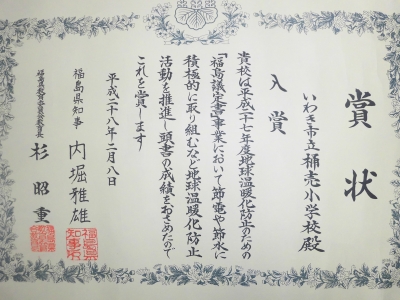 賞状
いわき市立桶売小学校殿
入賞
貴校は平成二十七年度地球温暖化防止のための
「福島議定書」事業において節電や節水に
積極的に取り組むなど地球温暖化防止
活動を推進し頭書の成績をおさめたので
これを賞します
平成二十八年二月八日
福島県知事 内堀雅雄
杉昭重